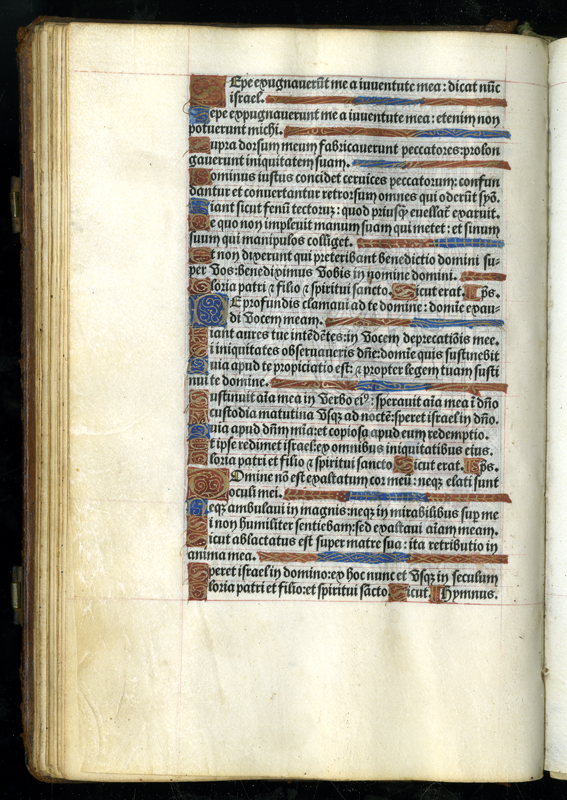 Sepe expugnauerũt me a iuuentute mea: dicat nũc
israel.
Sepe expugnauerunt me a iuuentute mea: etenim non
potuerunt michi.
Supra dorsum meum fabricauerunt peccatores: prolon
gauerunt iniquitatem suam.
Dominus iustus concidet ceruices peccatorum: confun
dantur et conuertantur retrorsum omnes qui oderũt syõ.
Fiant sicut fenũ tectorum: quod priusq̃ euellat̃ exaruit.
De quo non impleuit manum suam qui metet: et sinum
suum qui manipulos colliget.
Et non dixerunt qui preteribant benedictio domini su-
per vos: benediximus vobis in nomine domini.
Gloria patri ⁊ filio ⁊ spiritui sancto. Sicut erat. ps̃.
DE profundis clamaui ad te domine: domĩe exau-
di vocem meam.
Fiant aures tue intẽdẽtes: in vocem deprecatiõis mee.
Si iniquitates obseruaueris dñe: domĩe quis sustinebit
Quia apud te propiciatio est: ⁊ propter legem tuam susti
nui te domine.
Sustinuit aĩa mea in verbo eiꝰ: sperauit aĩa mea ĩ dño
A custodia matutina vsq̃ ad noctẽ: speret israel in dño.
Quia apud dñm mĩa: et copiosa apud eum redemptio.
Et ipse redimet israel: ex omnibus iniquitatibus eius.
Gloria patri et filio ⁊ spiritui sancto. Sicut erat. ps̃.
Domine nõ est exaltatum cor meũ: neq̃ elati sunt
oculi mei.
Neq̃ ambulaui in magnis: neq̃ in mirabilibus sup̱ me
Si non humiliter sentiebam: sed exaltaui aĩam meam.
Sicut ablactatus est super matre sua: ita retributio in
anima mea.
Speret israel in domino: ex hoc nunc et vsq̃ in seculum
Gloria patri et filio: et spiritui sãcto. Sicut. Hymnus.